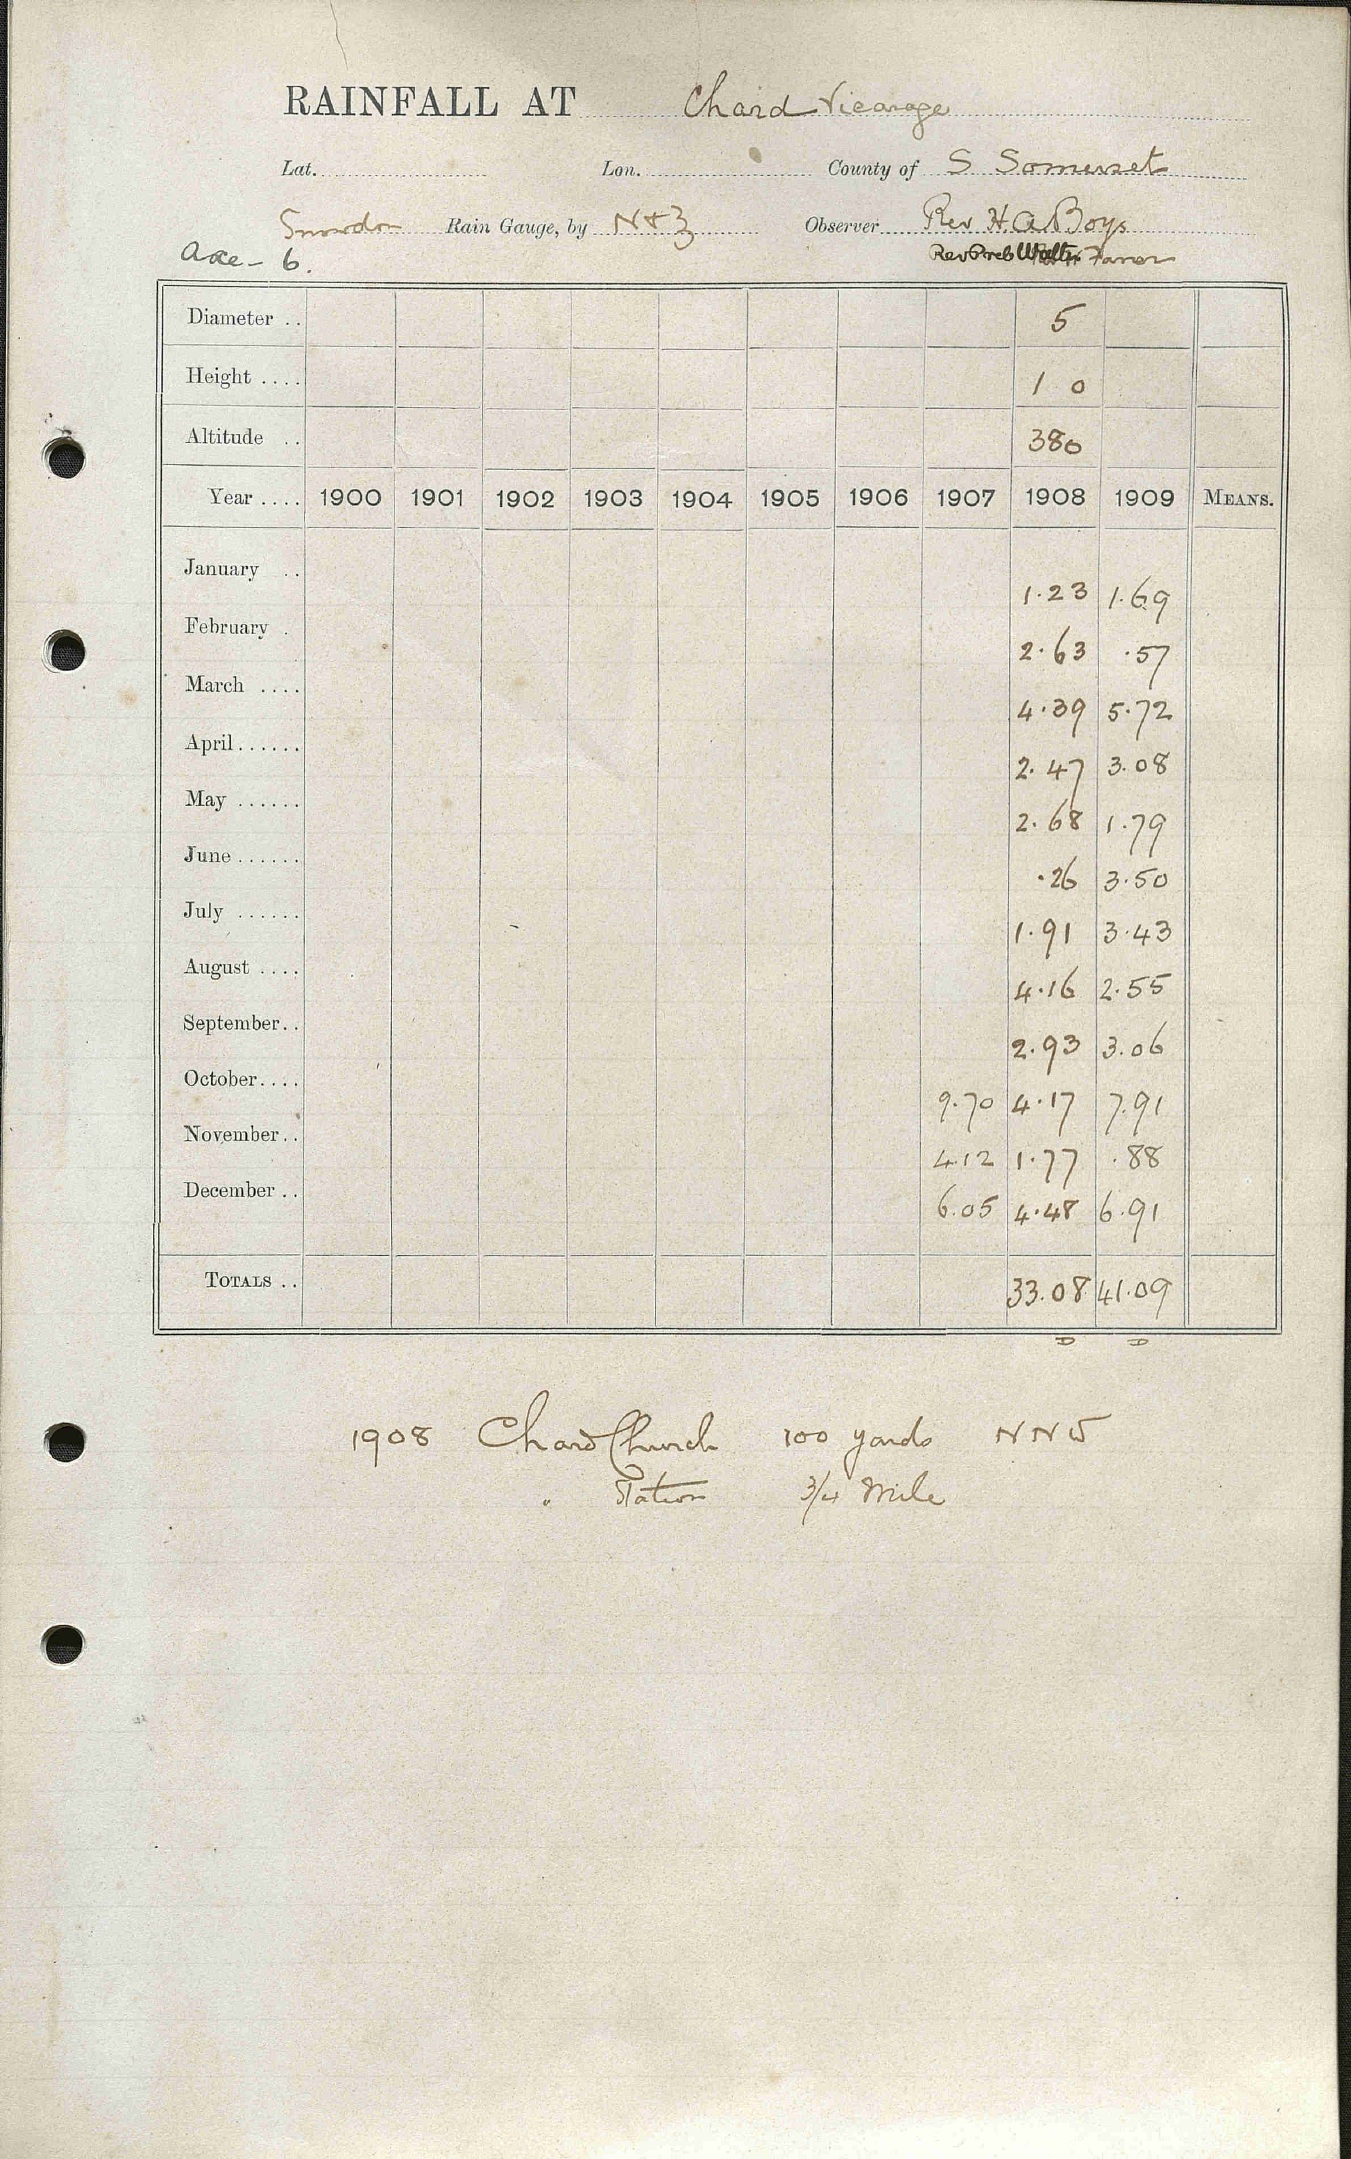 RAINFALL AT Chard Vicarage
Lat. Lon. County of S Somerset
Snowdon Rain Gauge, by N & Z Observer Rev H. A. Boys
Axe - 6. Rev Preb Farrer
Diameter .. 5
Height .... 1 0
Altitude .. 380
Year .... 1900 1901 1902 1903 1904 1905 1906 1907 1908 1909 MEANS.
January .. 1.23 1.69
February . 2.63 .57
March .... 4.39 5.72
April ...... 2.47 3.08
May ...... 2.68 1.79
June ...... .26 3.50
July ...... 1.91 3.43
August .... 4.16 2.55
September .. 2.93 3.06
October .... 9.70 4.17 7.91
November .. 4.12 1.77 .88
December .. 6.05 4.48 6.91
TOTALS .. 33.08 41.09
D D
1908 Chard Church 100 yards N N W
" Station 3/4 Mile